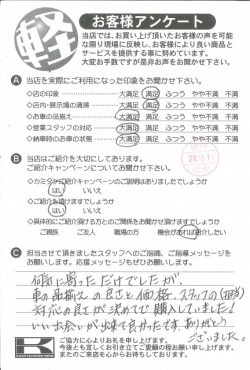 軽
お客様アンケート
当店では、お買い上げ頂いたお客様の声を可能
な限り現場に反映し、お客様により良い商品と
サービスを提供する事に努めています。
大変お手数ですが是非お声をお聞かせ下さい。
A 当店を実際にご利用になった印象をお聞かせ下さい。
◇店の印象 大満足 満足 ふつう やや不満 不満
◇店内・展示場の清掃 大満足 満足 ふつう やや不満 不満
◇お車の品揃え 大満足 満足 ふつう やや不満 不満
◇営業スタッフの対応 大満足 満足 ふつう やや不満 不満
◇納車時のお車の状態 大満足 満足 ふつう やや不満 不満
B 当店はご紹介を大切にしております。
ご紹介キャンペーンについてお聞かせ下さい。
◇カミタケご紹介キャンペーンのご説明はありましたでしょうか
はい いいえ
◇ご紹介を頂けますでしょうか
はい いいえ
◇具体的にご紹介頂ける方とのご関係をお聞かせ頂けますでしょうか
ご親族 ご友人 職場の方 機会があれば紹介したい
C 担当させて頂きましたスタッフへのご指摘、ご指導メッセージを
お願いします。応援メッセージもぜひお願いします。
何気に寄っただけでしたが、
車の品揃えの良さと価格、スタッフの
対応の良さが決めてで購入しました!
いい出会いが出来て良かったです。ありがとう
ございました。
K
ご協力に心よりお礼を申し上げます。
今後とも宜しくお引き立てご愛顧の程お願い申し上げます。
またのご来店を心からお待ちしております。